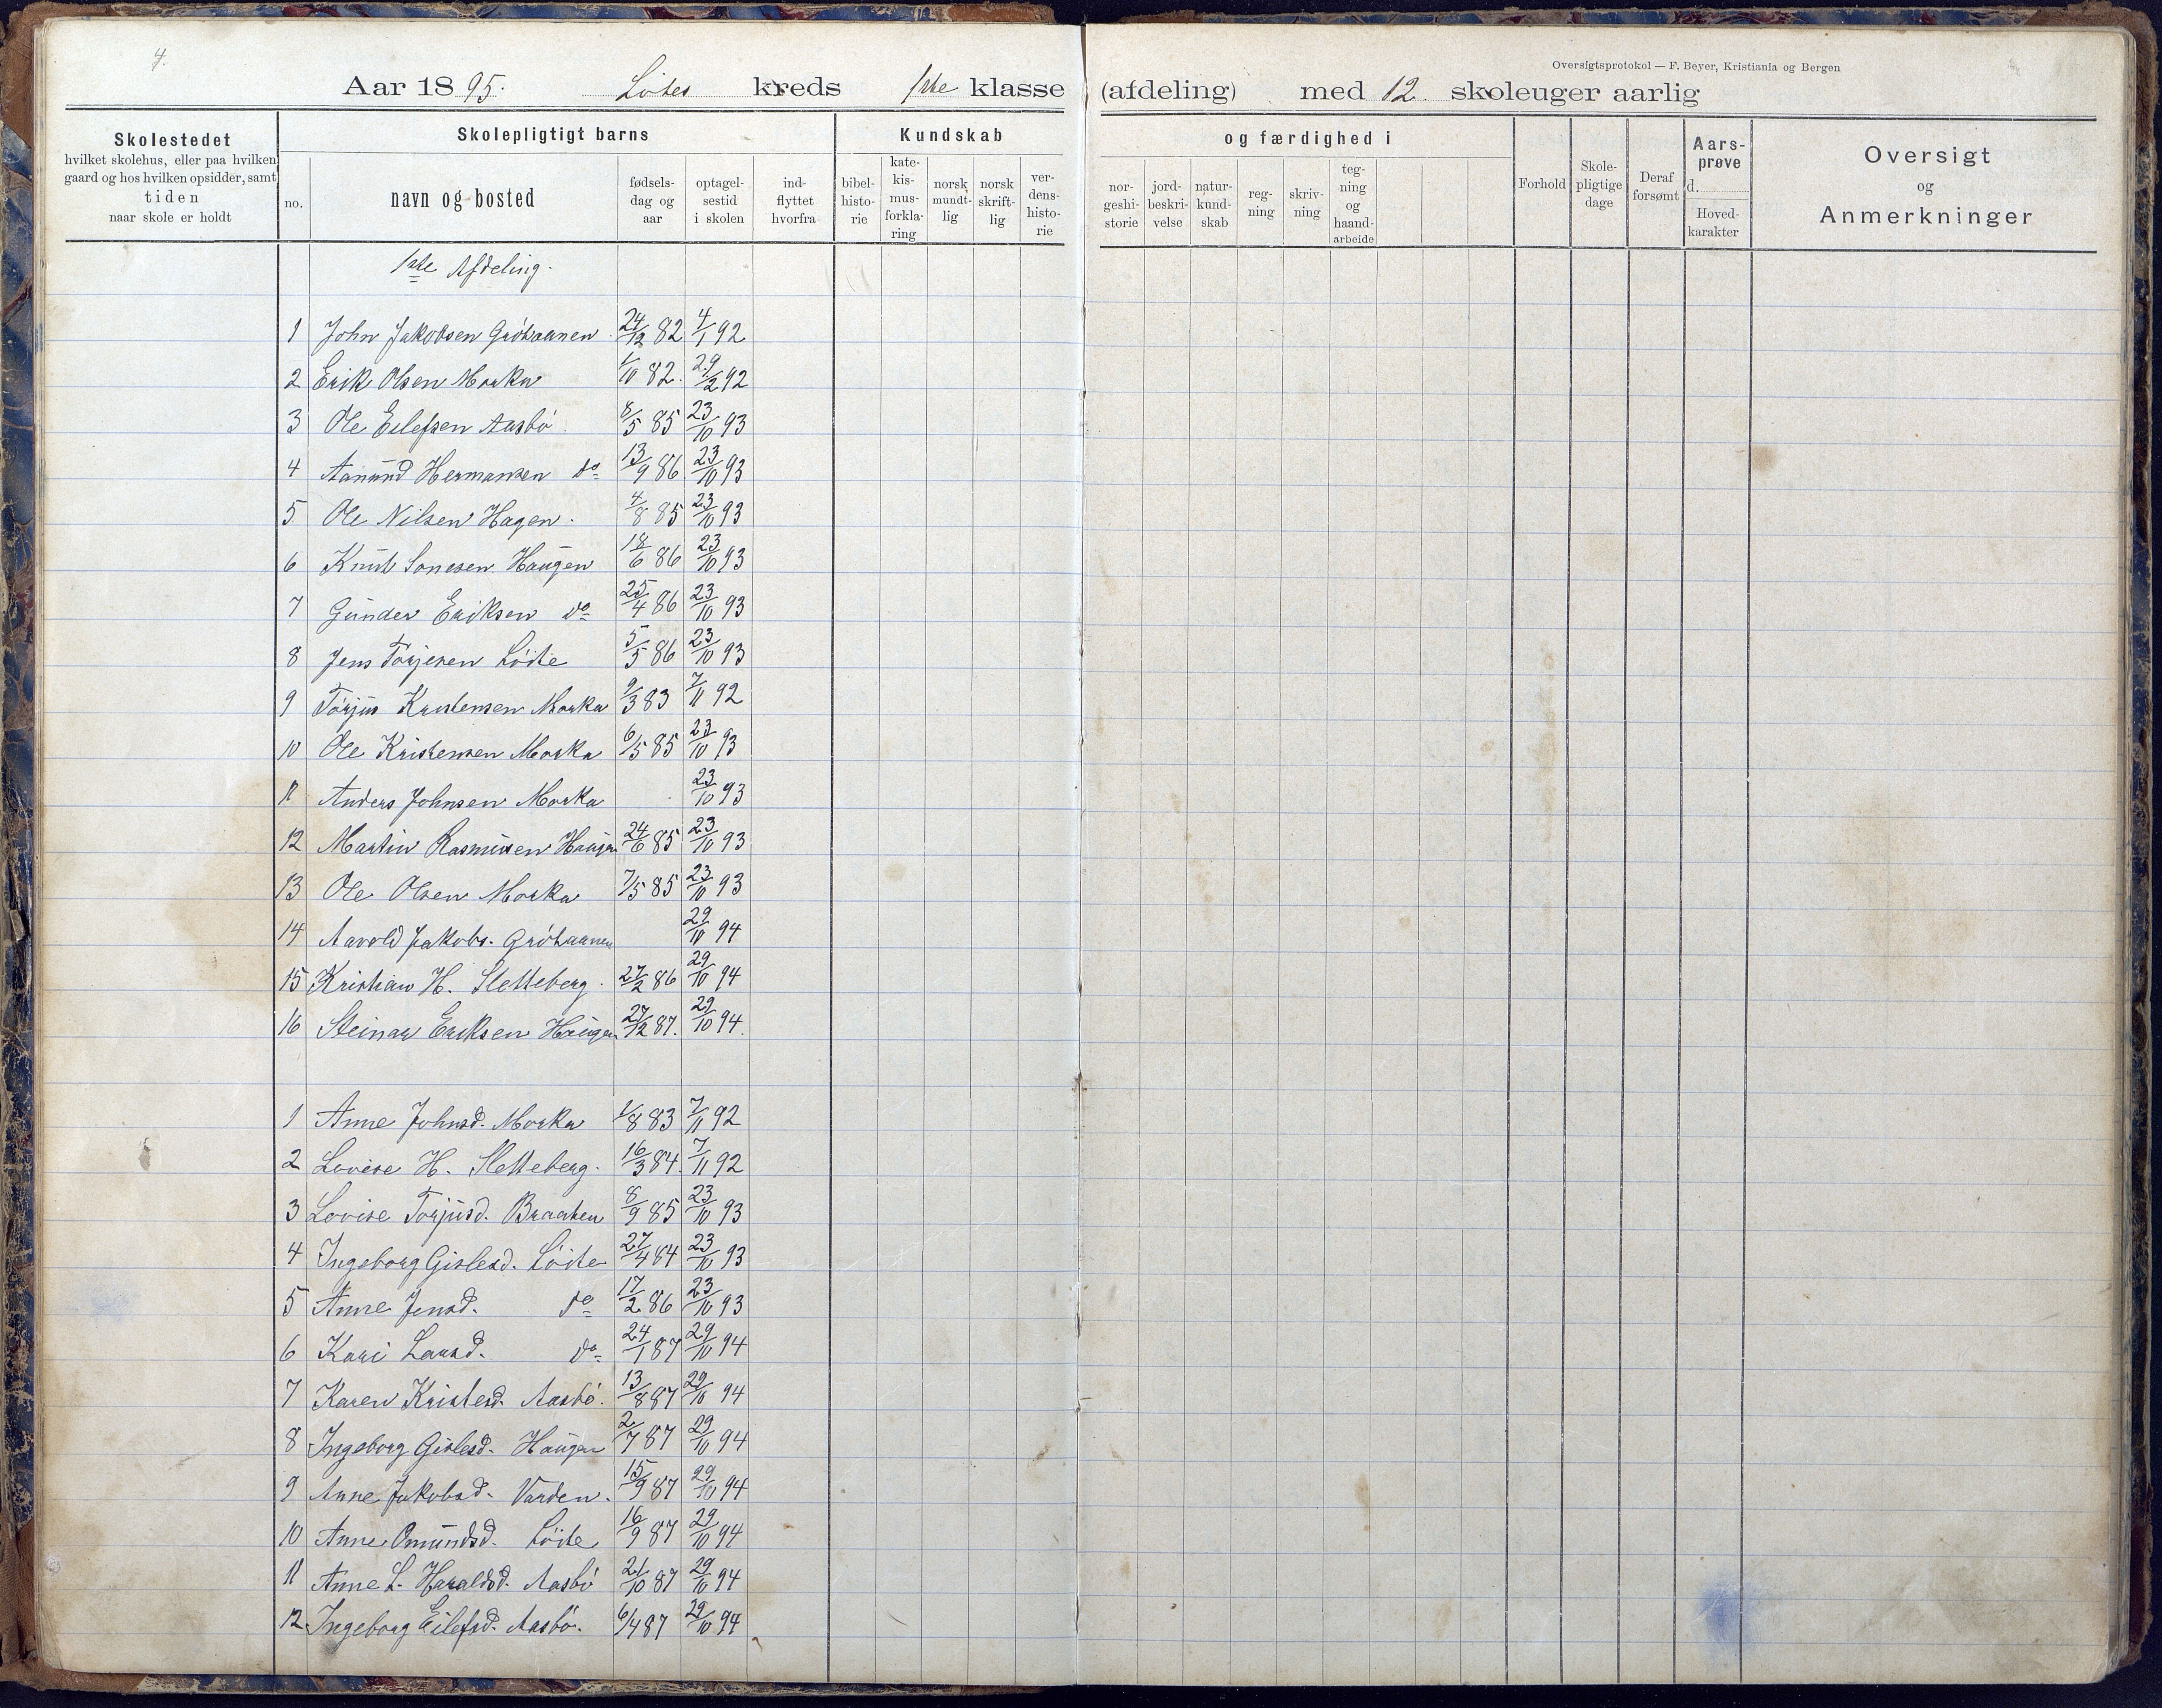 4.
Oversigtsprotokol — F. Beyer, Kristiania og Bergen
Aar 1895. Löites kreds 1ste klasse (afdeling) med 12 skoleuger aarlig
Skolestedet
hvilket skolehus, eller paa hvilken
gaard og hos hvilken opsidder, samt
tiden
naar skole er holdt
Skolepligtigt barns
no.
navn og bosted
fødsels-
dag og
aar
optagel-
sestid
i skolen
ind-
flyttet
hvorfra
Kundskab
bibel-
histo-
rie
kate-
kis-
mus-
forkla-
ring
norsk
mundt-
lig
norsk
skrift-
lig
ver-
dens-
histo-
rie
og færdighed i
nor-
geshi-
storie
jord-
beskri-
velse
natur-
kund-
skab
reg-
ning
skriv-
ning
teg-
ning
og
haand-
arbeide
Forhold
Skole-
pligtige
dage
Deraf
forsømt
Aars-
prøve
d.
Hoved-
karakter
Oversigt
og
Anmerkninger
1ste Afdeling.
1 John Jakobsen Gröhaanen 24/12 82 4/1 92
2 Erik Olsen Morka 1/10 82. 29/2 92
3 Ole Eilefsen Aasbö 8/5 85 23/10 93
4 Aanund Hermansen do 13/9 86 23/10 93
5 Ole Nilsen Hagen. 4/8 85 23/10 93
6 Knut Sonesen Haugen 18/6 86 23/10 93
7 Gunder Eriksen do 25/4 86 23/10 93
8 Jens Torjesen Löite 5/5 86 23/10 93
9 Torjus Kristensen Morka 9/3 83 7/11 92
10 Ole Kristensen Morka 6/5 85 23/10 93
11 Anders Johnsen Morka 23/10 93
12 Martin Rasmussen Haugen 24/6 85 23/10 93
13 Ole Olsen Morka 7/5 85 23/10 93
14 Aavold Jakobs. Gröhaanen 29/10 94
15 Kristian H. Sletteberg. 27/2 86 29/10 94
16 Steinar Eriksen Haugen 27/12 87. 29/10 94.
1 Anne Johnsd. Morka 1/8 83 7/11 92
2 Lovise H. Sletteberg. 16/3 84. 7/11 92
3 Lovise Torjusd. Braaten 8/9 85 23/10 93
4 Ingeborg Gislesd. Löite 27/4 84 23/10 93
5 Anne Jensd. do 17/2 86 23/10 93
6 Kari Larsd. do 24/1 87 29/10 94
7 Karen Kristesd. Aasbö. 13/8 87 29/10 94
8 Ingeborg Gislesd. Haugen 2/7 87 29/10 94
9 Anne Jakobsd. Varden. 15/9 87 29/10 94
10 Anne Omundsd. Löite 16/9 87 29/10 94
11 Anne L. Haraldsd. Aasbö 21/10 87 29/10 94
12 Ingeborg Eilefsd. Aasbö. 6/4 87 29/10 94